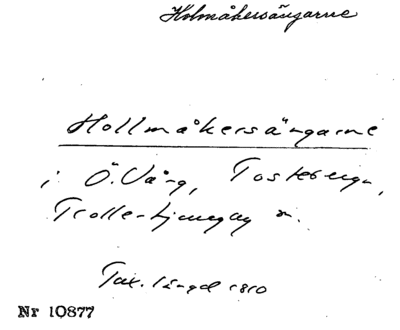 Holmåkersängarne
Hollmåkersängarne
i Ö. Vång, Tosteberga,
Trolle-Ljungby m.
Tax. längd 1810
Nr 10877